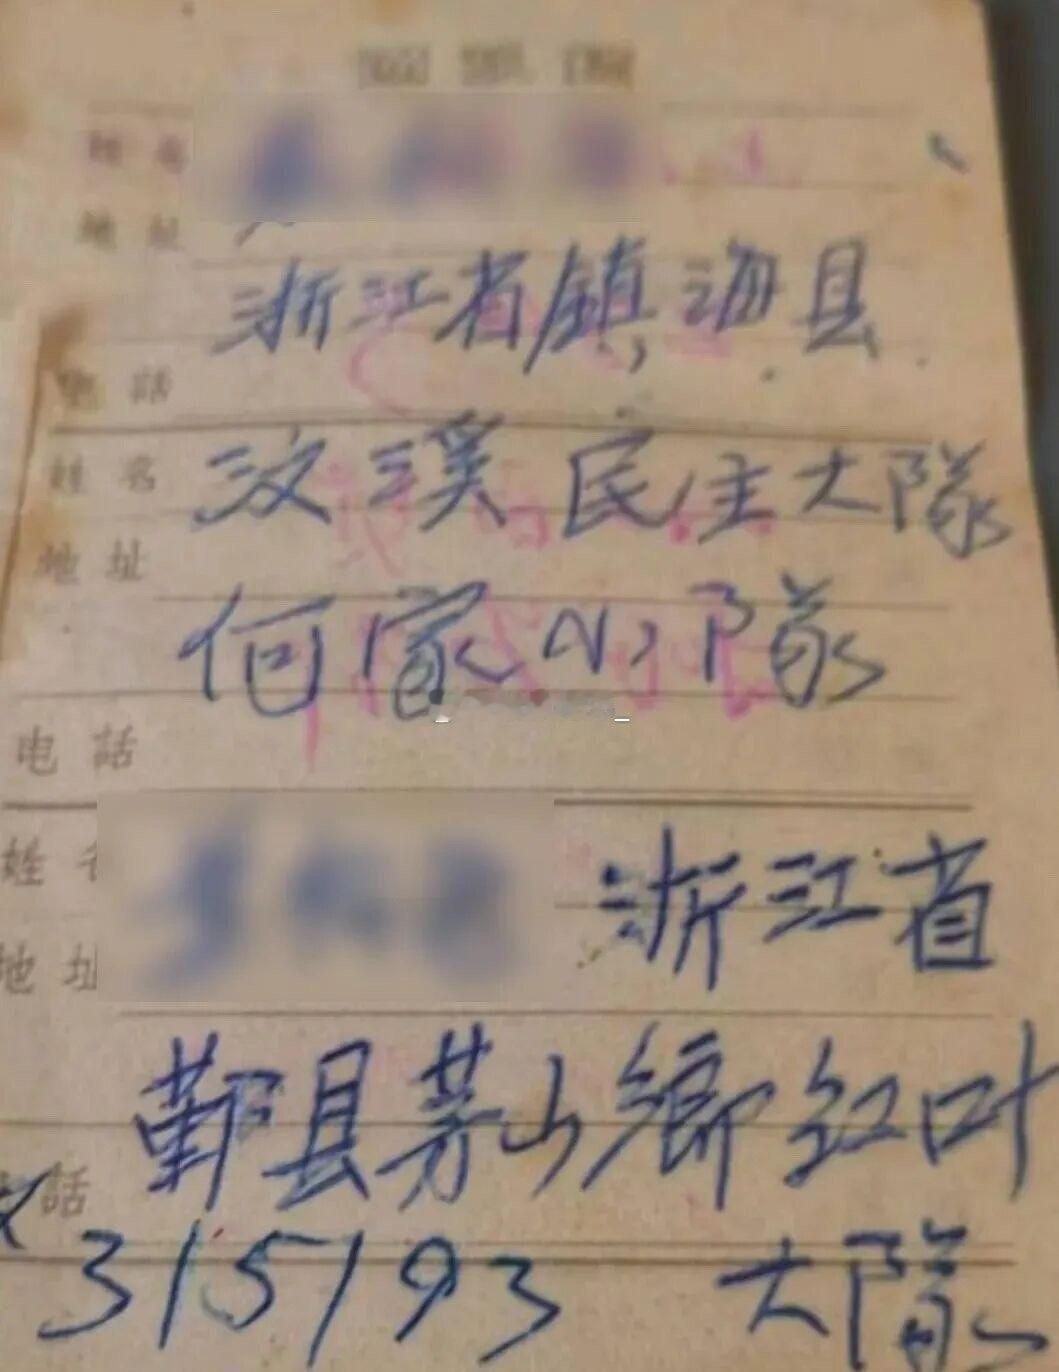 姓名
地址
浙江省鎮海县
电話
姓名 汶溪民主大隊
地址
何家小隊
电話
姓名 浙江省
地址
鄞县茅山鄉红叶
話
315193 大隊